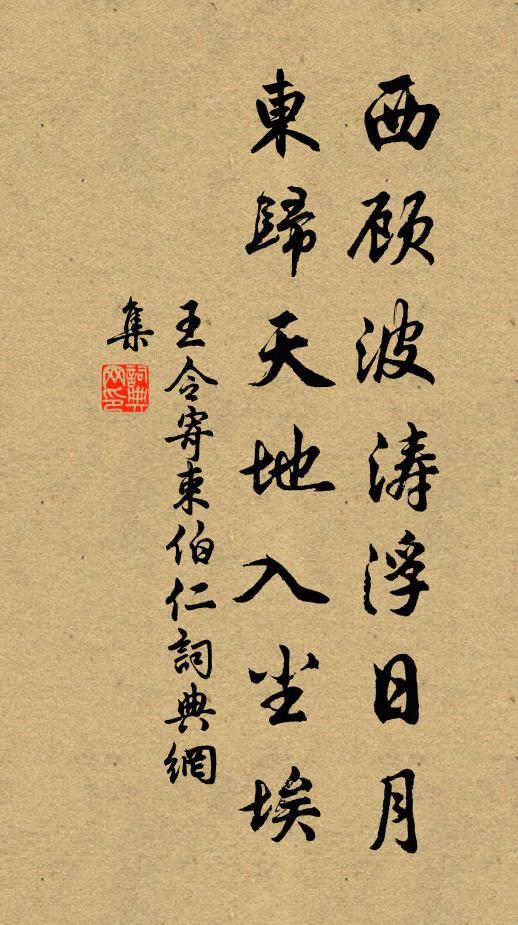 西顾波涛浮日月
東歸天地入尘埃
王令寄束伯仁詞典網
集
詞典網印